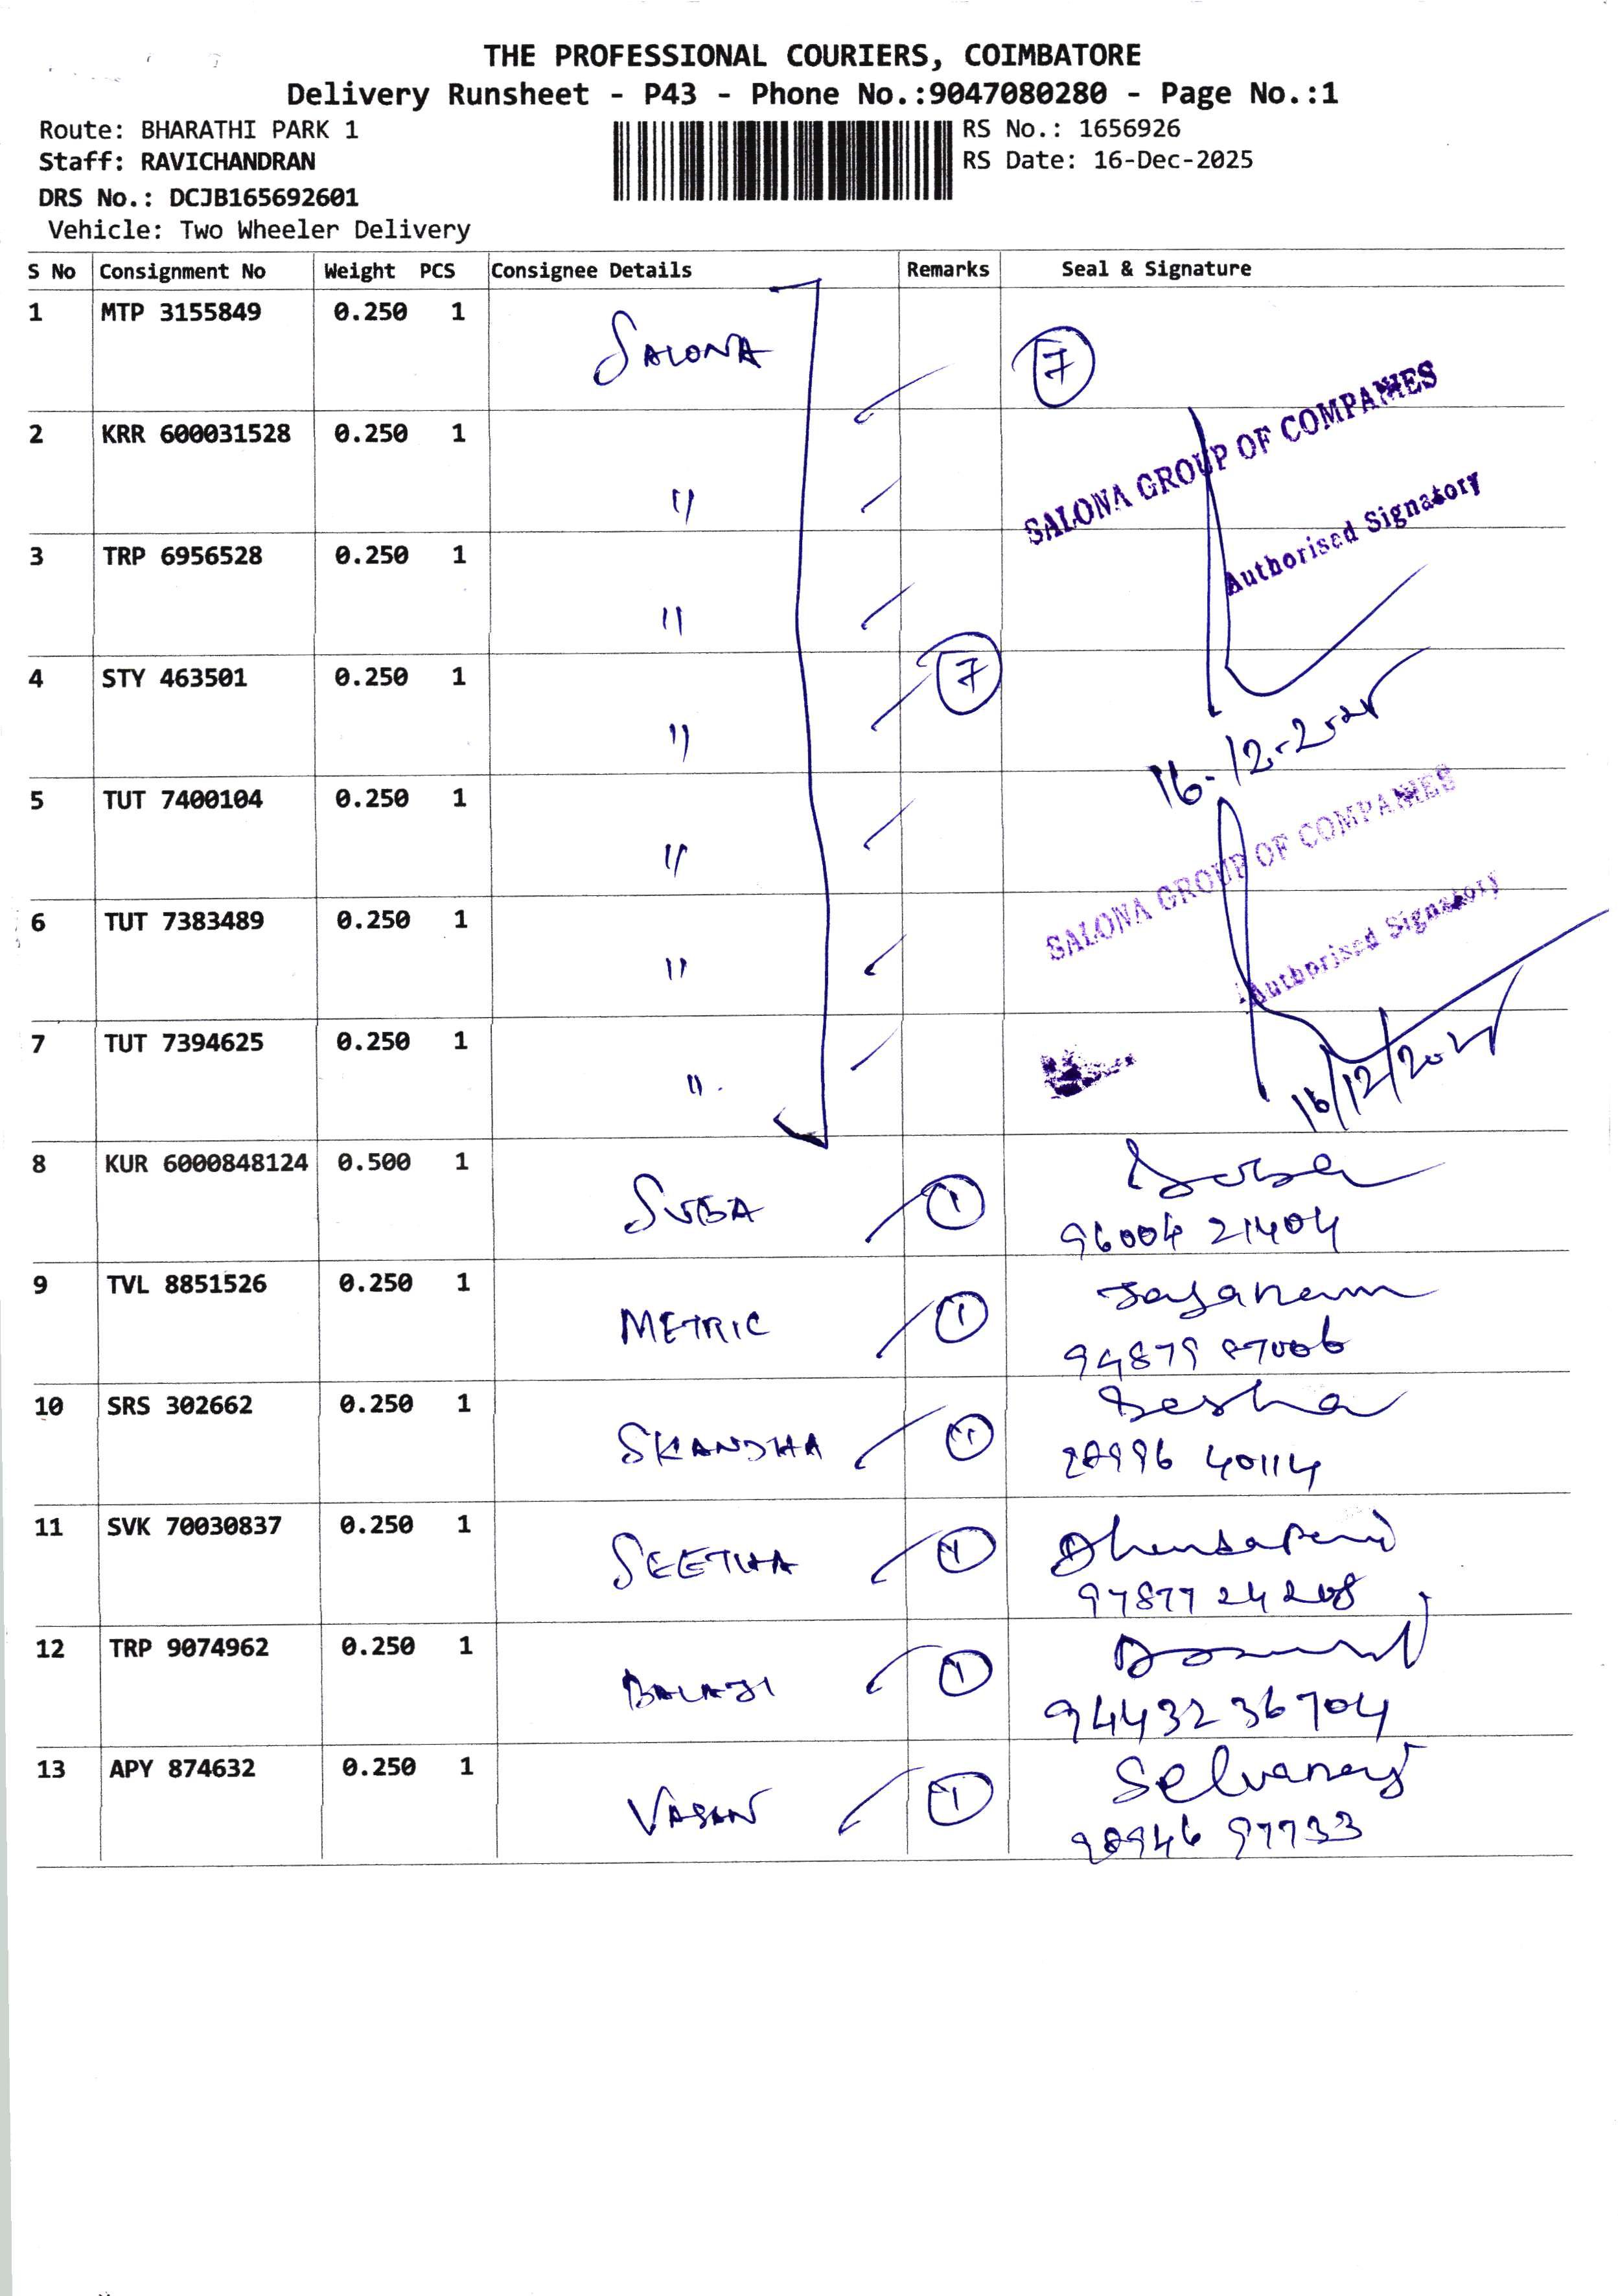 THE PROFESSIONAL COURIERS, COIMBATORE
Delivery Runsheet - P43 - Phone No.:9047080280 - Page No.:1
Route: BHARATHI PARK 1
RS No.: 1656926
Staff: RAVICHANDRAN
RS Date: 16-Dec-2025
DRS No.: DCJB165692601
Vehicle: Two Wheeler Delivery
S No Consignment No Weight PCS Consignee Details Remarks Seal & Signature
1 MTP 3155849 0.250 1 SALONA 7
2 KRR 600031528 0.250 1 "
SALONA GROUP OF COMPANIES
Authorised Signatory
3 TRP 6956528 0.250 1 "
4 STY 463501 0.250 1 " 7
16-12-2025
5 TUT 7400104 0.250 1 "
SALONA GROUP OF COMPANIES
Authorised Signatory
6 TUT 7383489 0.250 1 "
7 TUT 7394625 0.250 1 "
16/12/2025
8 KUR 6000848124 0.500 1 SUBA 1
96004 21404
9 TVL 8851526 0.250 1 METRIC 1
10 SRS 302662 0.250 1 SKANDHA 1
40114
11 SVK 70030837 0.250 1 SEETHA 1
97877 24208
12 TRP 9074962 0.250 1 BALAJI 1
94432 36704
13 APY 874632 0.250 1 VASAN 1
Selvaraj
98946 97733